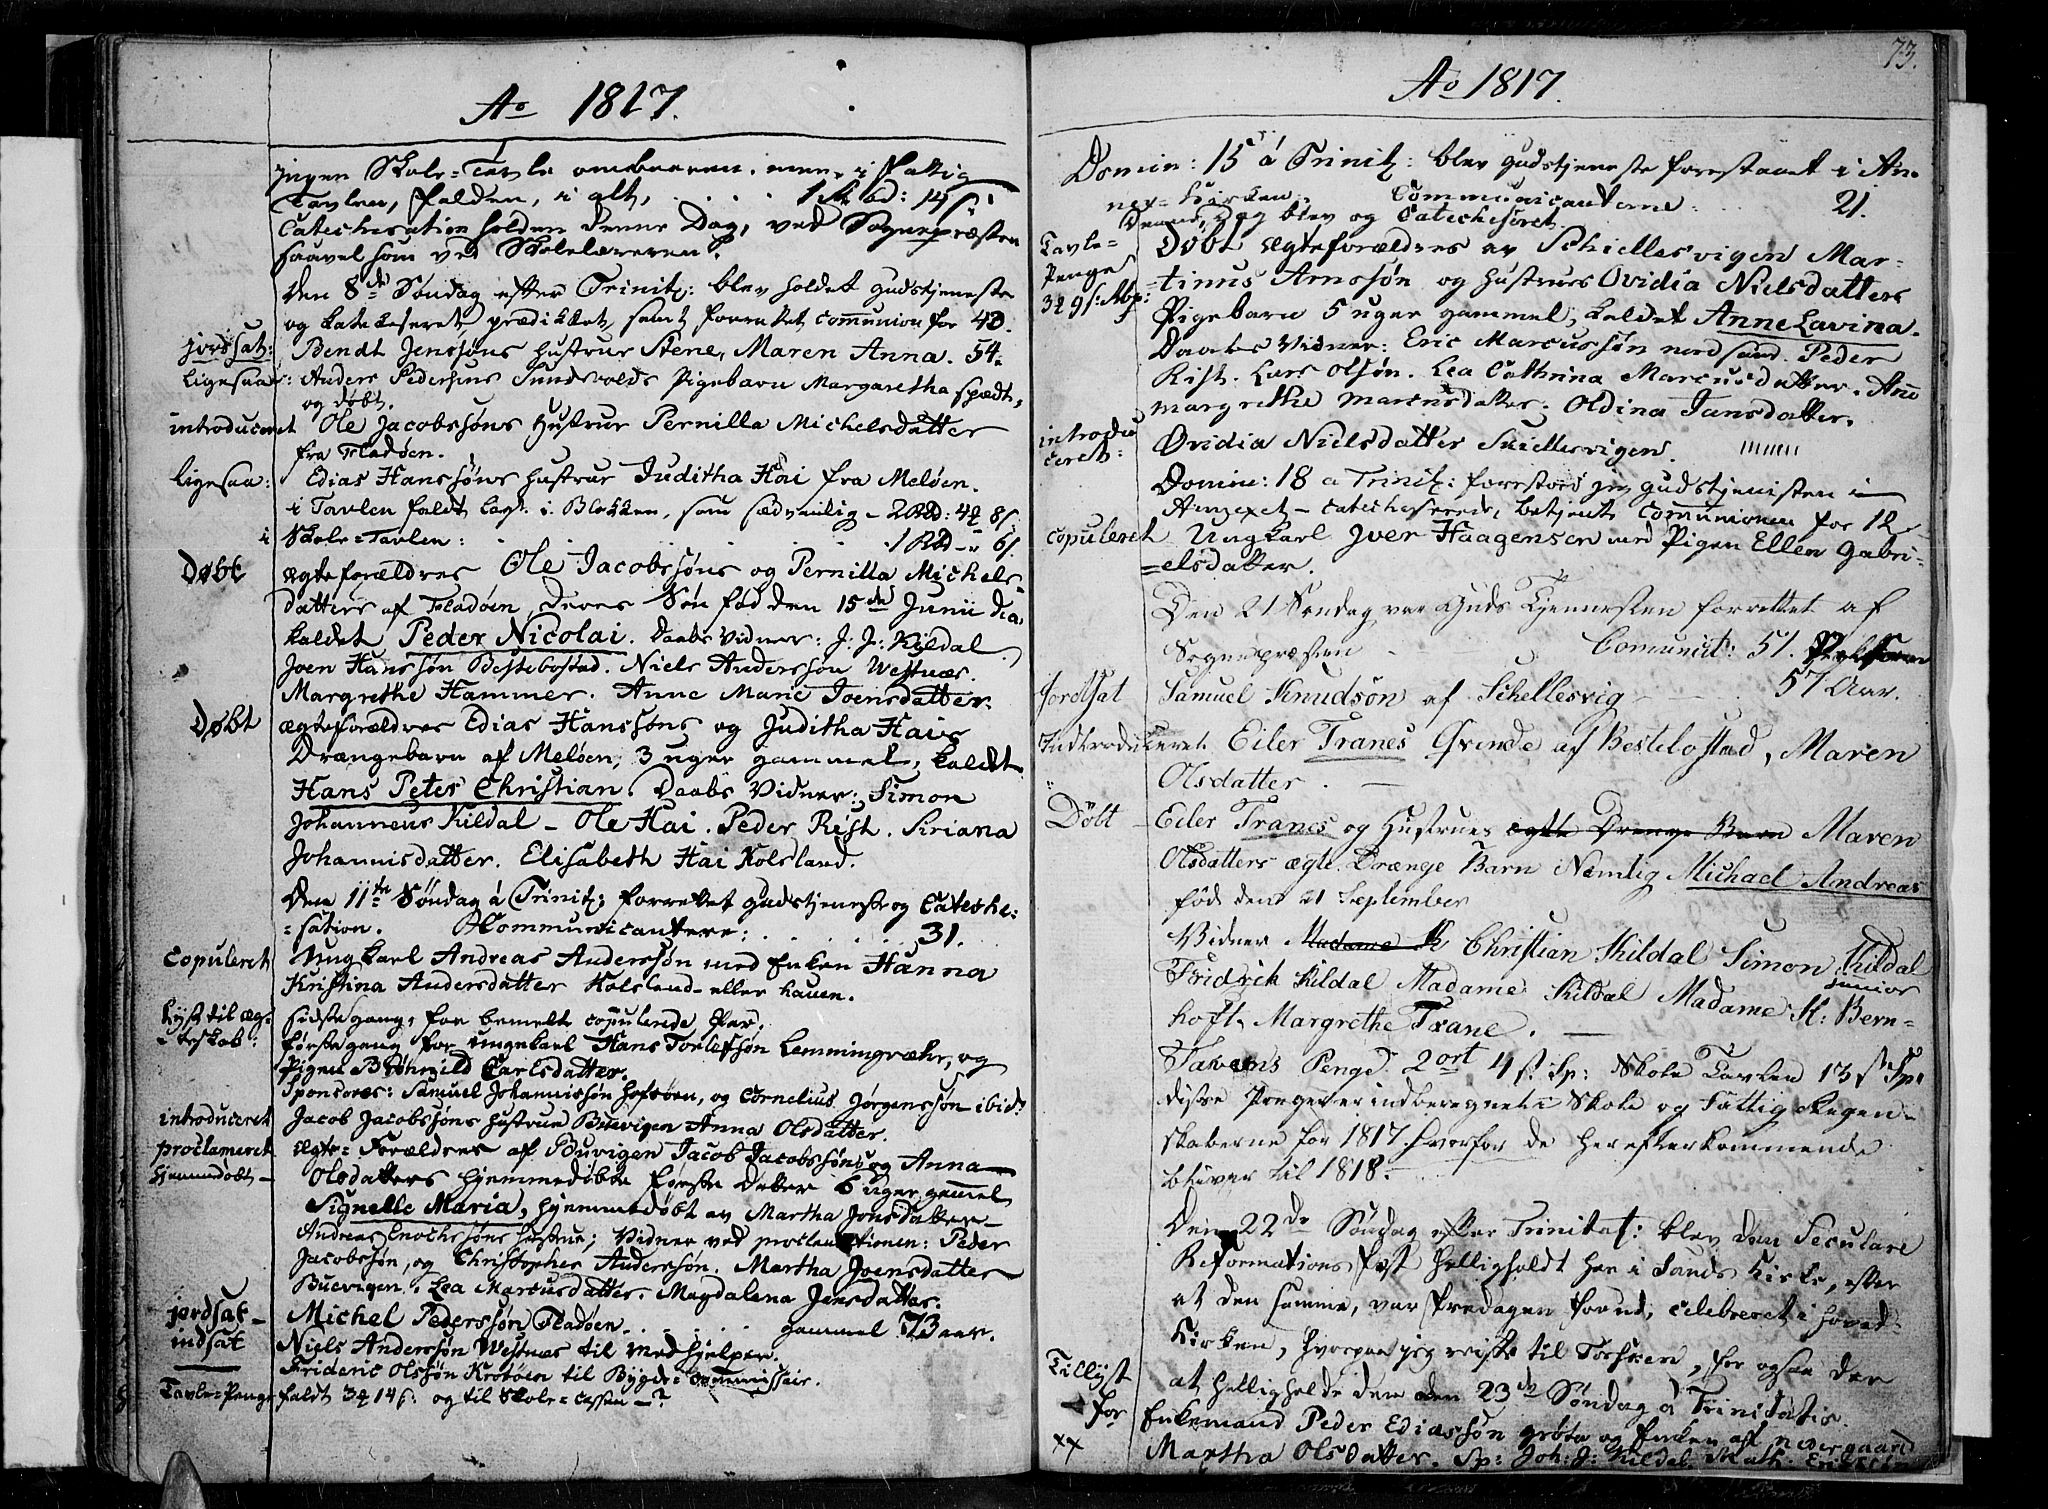 Ao 1817.
ingen Skole-Tavle ombaaren. men i Fattig
Tavlen, falden, i alt, . . . .
Catechisation holden denne Dag, ved Sognepræsten
saavel som ved Skolelæreren.
Den 8de Søndag efter Trinit: blev holdet Gudstjeneste
og katekiseret, prædikket, samt forrettet Communion for 40.
jordsat: Bendt Jenssøns Hustrue Stene, Maren Anna. 54.
ligesaa: Anders Pedersens Sundsvolds Pigebarn Margaretha spædt,
og døbt.
introduceret Ole Jacobssøns Hustrue Pernilla Michelsdatter
fra Fladøen.
ligesaa: Edias Hanssøns Hustrue Juditha Hai fra Meløen.
i Tavlen faldt lagt i Blokken, som sædvanlig
i Skole-Tavlen:
Døbt ægteforældres Ole Jacobssøns og Pernilla Michels-
datters af Fladøen, deres Søn fød den 15de Junii
kaldet Peder Nicolai. Daabs Vidner: J: J: Kildal.
Joen Hanssøn Bestebostad. Niels Anderssøn Westnæs.
Margrethe Hammer. Anne Marie Joensdatter.
Døbt ægteforældres Edias Hanssøns og Juditha Hais
Drængebarn af Meløen, 3 uger gammel, kaldt
Hans Peter Christian. Daabs Vidner: Simon
Johanneus Kildal - Ole Hai. Peder Rist. Siriana
Johannisdatter. Elisabeth Hai Kolsland.
Den 11te Søndag á Trinit: forrettet Gudstjeneste og Cateche-
=sation. Communicantere: . . . . 31.
Copuleret Ungkarl Andreas Anderssøn med Enken Hanna
Kristina Andersdatter Kolsland eller haven.
Lyst til æg-
teskab: sidste gang, for bemelte copulerede Par.
første gang for Ungekarl Hans Tollefssøn Lemmingvær, og
Pigen Carlsdatter.
Sponsores: Samuel Johannissøn, og Cornelius Jørgenssøn ibid:
introduceret Jacob Jacobssøns Hustrue Buevigen Anna Olsdatter.
proclameret ægte-Forældres af Buvigen Jacob Jacobssøns og Anna
Hjemmedøbt - Olsdatters hjemmedøbte første Datter 6 Uger gammel
Signelle Maria, hjemmedøbt av Martha Jonsdatter
Andreas Enochssøns hustrue; Vidner ved proclamationen: Peder
Jacobssøn, og Christopher Anderssøn. Martha Joensdatter
Buevigen. Lea Marcusdatter. Magdalena Jensdatter.
jordsat - Michel Pederssøn Fladøen. . . . . gammel 73 aar.
indsat Niels Anderssøn Westnæs til medhjelper.
Frideric Olssøn Krotøen til Bygde-Commissair.
Tavle-Penge faldt og til Skole-Cassen - ?
73.
Ao 1817.
Domin: 15 á Trinit: blev Gudstjeneste forestaaet i An-
nex-Kirken. Communicanterne: 21.
Denne Dag blev og Catechiseret.
Tavle-
Penge
Døbt ægteforældres av Schiellesvigen Mar-
=tinus Arnssøn og Hustrues Ovidia Nielsdatters
Pigebarn 5 uger gammel, kaldet Anne Lavina.
Daabs Vidner: Eric Marcussøn nordsand. Peder
Rist. Lars Olsøn. Lea Cathrina Marcusdatter. Ane
margrethe marcusdatter. Oldina Jansdatter.
introdu
ceret: Ovidia Nielsdatter Skiellesvigen.
Domin: 18 a Trinit: forestod jeg Gudstjenisten i
Annexet - catechiserede, betjente Comunionen for 12
copuleret Ungkarl Iver Haagensen med Pigen Ellen Gabri-
=elsdatter.
Den 21 Søndag var Guds Tjennesten forrettet af
Sognepræsten - Comunict: 51.
Jordsat Samuel Knudsøn af Schellesvig - - 57 Aar.
Indtroduceret Eiler Tranes Qvinde af Bestebostad, Maren
Olsdatter.
Döbt - Eiler Tranes og Hustrues ægte Drenge Barn Maren
Olsdatters ægte Drænge Barn Nemlig Michael Andreas
fød den 21 September
Vidner Madame K Christian Kildal Simon Kildal
junior
Fridrich Kildal Madame Kildal Madame K: Bern=
hoft. Margrethe Trane. -
Tavlens Penge. 2 ort 4 s. Sp: Skole Tavlen 13 s Sp:
disse Penge er indberegnet i Skole og Fattig Regen-
skaberne for 1817. hvorfor de herefterkommende
bliver til 1818.
Den 22de Søndag efter Trinitat: blev den Seculare
Reformations fest Helligholdt her i Sands Kirke, efter
at den samme, var fredagen forud, celebreret i hoved-
Kirken, hvorpaa jeg reiste til Torsken, for ogsaa der
at Helligholde den den 23de Søndag á Trinitatis.
Tillyst
for Enkemand Peder Ediassøn grøta og Enken af nedergaard
xx Martha Olsdatter. Sp: Joh: J: Kildal. Math.